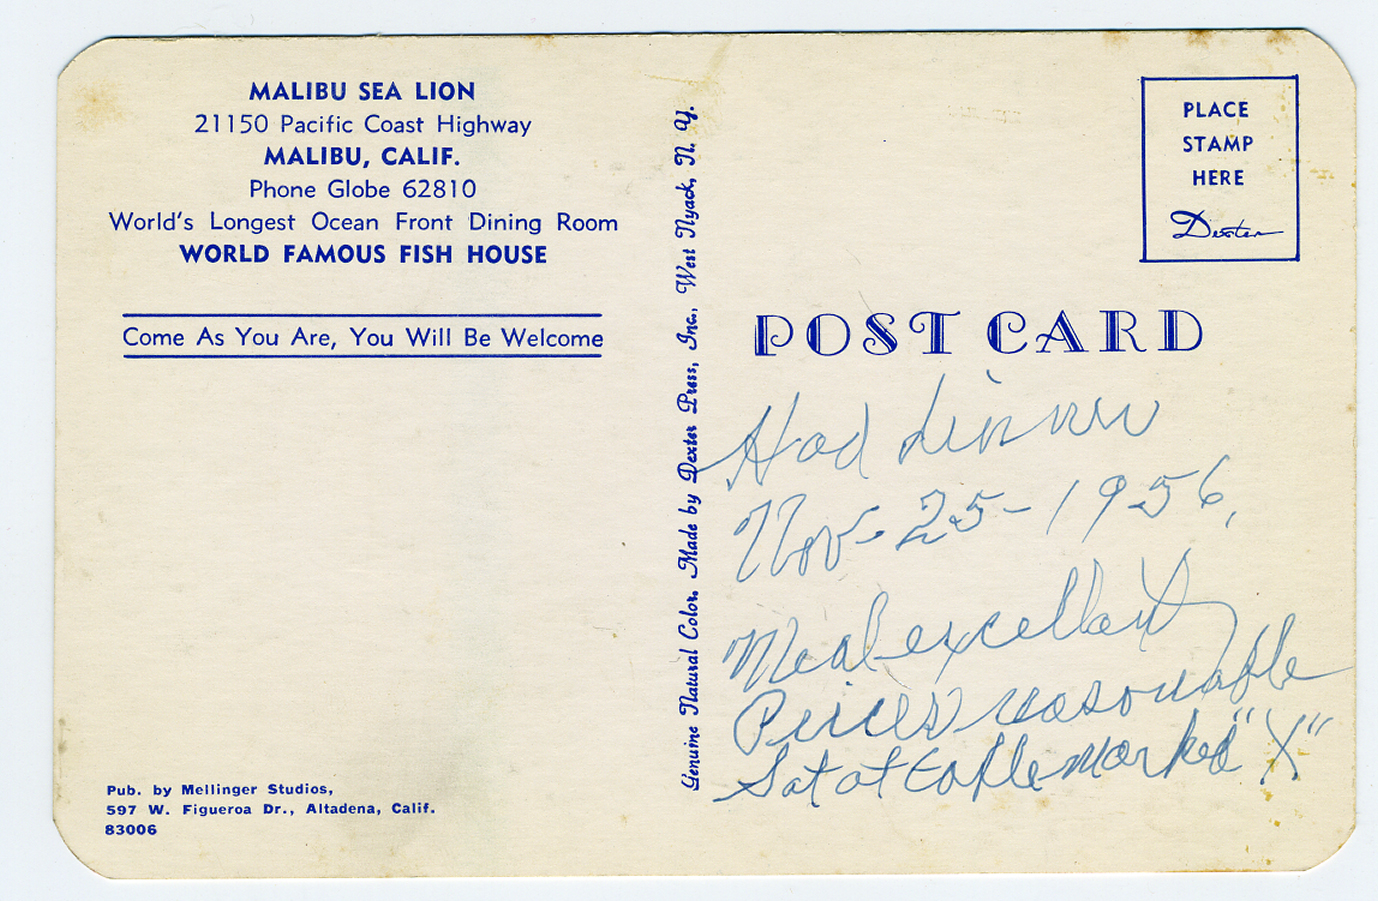 MALIBU SEA LION
21150 Pacific Coast Highway
MALIBU, CALIF.
Phone Globe 62810
World's Longest Ocean Front Dining Room
WORLD FAMOUS FISH HOUSE
Come As You Are, You Will Be Welcome
Pub. by Mellinger Studios,
597 W. Figueroa Dr., Altadena, Calif.
83006
Genuine Natural Color. Made by Dexter Press, Inc., West Nyack, N. Y.
PLACE
STAMP
HERE
Dexter
POST CARD
Had dinner
Nov. 25-1956,
Meal excellant
Prices reasonable
Sat at table marked "X"